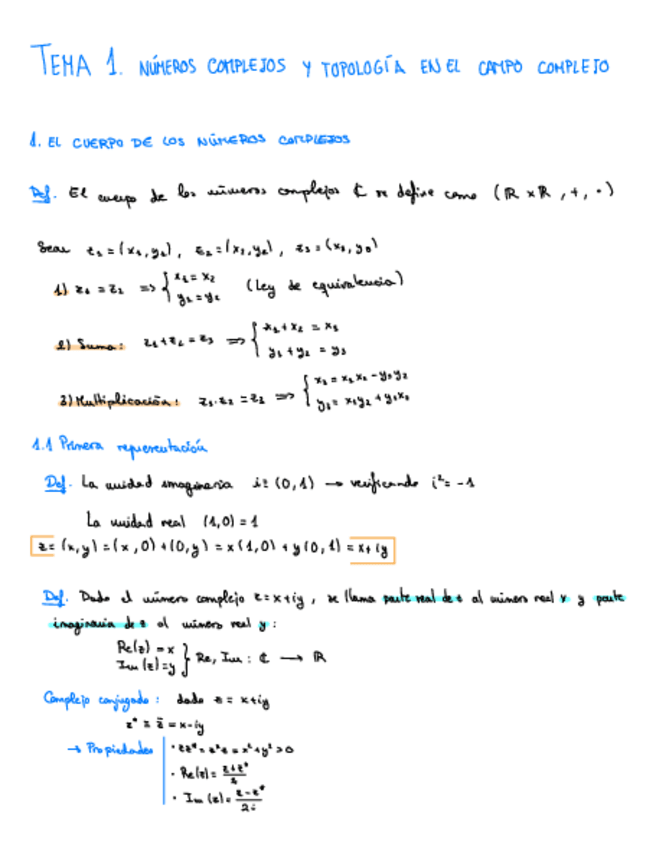 TEMA 1. NÚMEROS COMPLEJOS Y TOPOLOGÍA EN EL CAMPO COMPLEJO
1. EL CUERPO DE LOS NÚMEROS COMPLEJOS
Def. El cuerpo de los números complejos ℂ se define como (ℝ x ℝ, +, ·)
Sean z₁ = (x₁, y₁), z₂ = (x₂, y₂), z₃ = (x₃, y₃)
1) z₁ = z₂ => { x₁ = x₂ y₁ = y₂ (Ley de equivalencia)
2) Suma: z₁ + z₂ = z₃ => { x₁ + x₂ = x₃ y₁ + y₂ = y₃
3) Multiplicación: z₁·z₂ = z₃ => { x₃ = x₁x₂ - y₁y₂ y₃ = x₁y₂ + y₁x₂
1.1 Primera representación
Def. La unidad imaginaria i ≡ (0,1) → verificando i² = -1
La unidad real (1,0) = 1
z = (x,y) = (x,0) + (0,y) = x(1,0) + y(0,1) = x + iy
Def. Dado el número complejo z = x + iy, se llama parte real de z al número real x y parte
imaginaria de z al número real y:
Re(z) = x
Im(z) = y } Re, Im: ℂ → ℝ
Complejo conjugado: dado z = x + iy
z* ≡ z̄ = x - iy
→ Propiedades · zz* = z*z = x² + y² > 0
· Re(z) = (z + z*)/2
· Im(z) = (z - z*)/2i